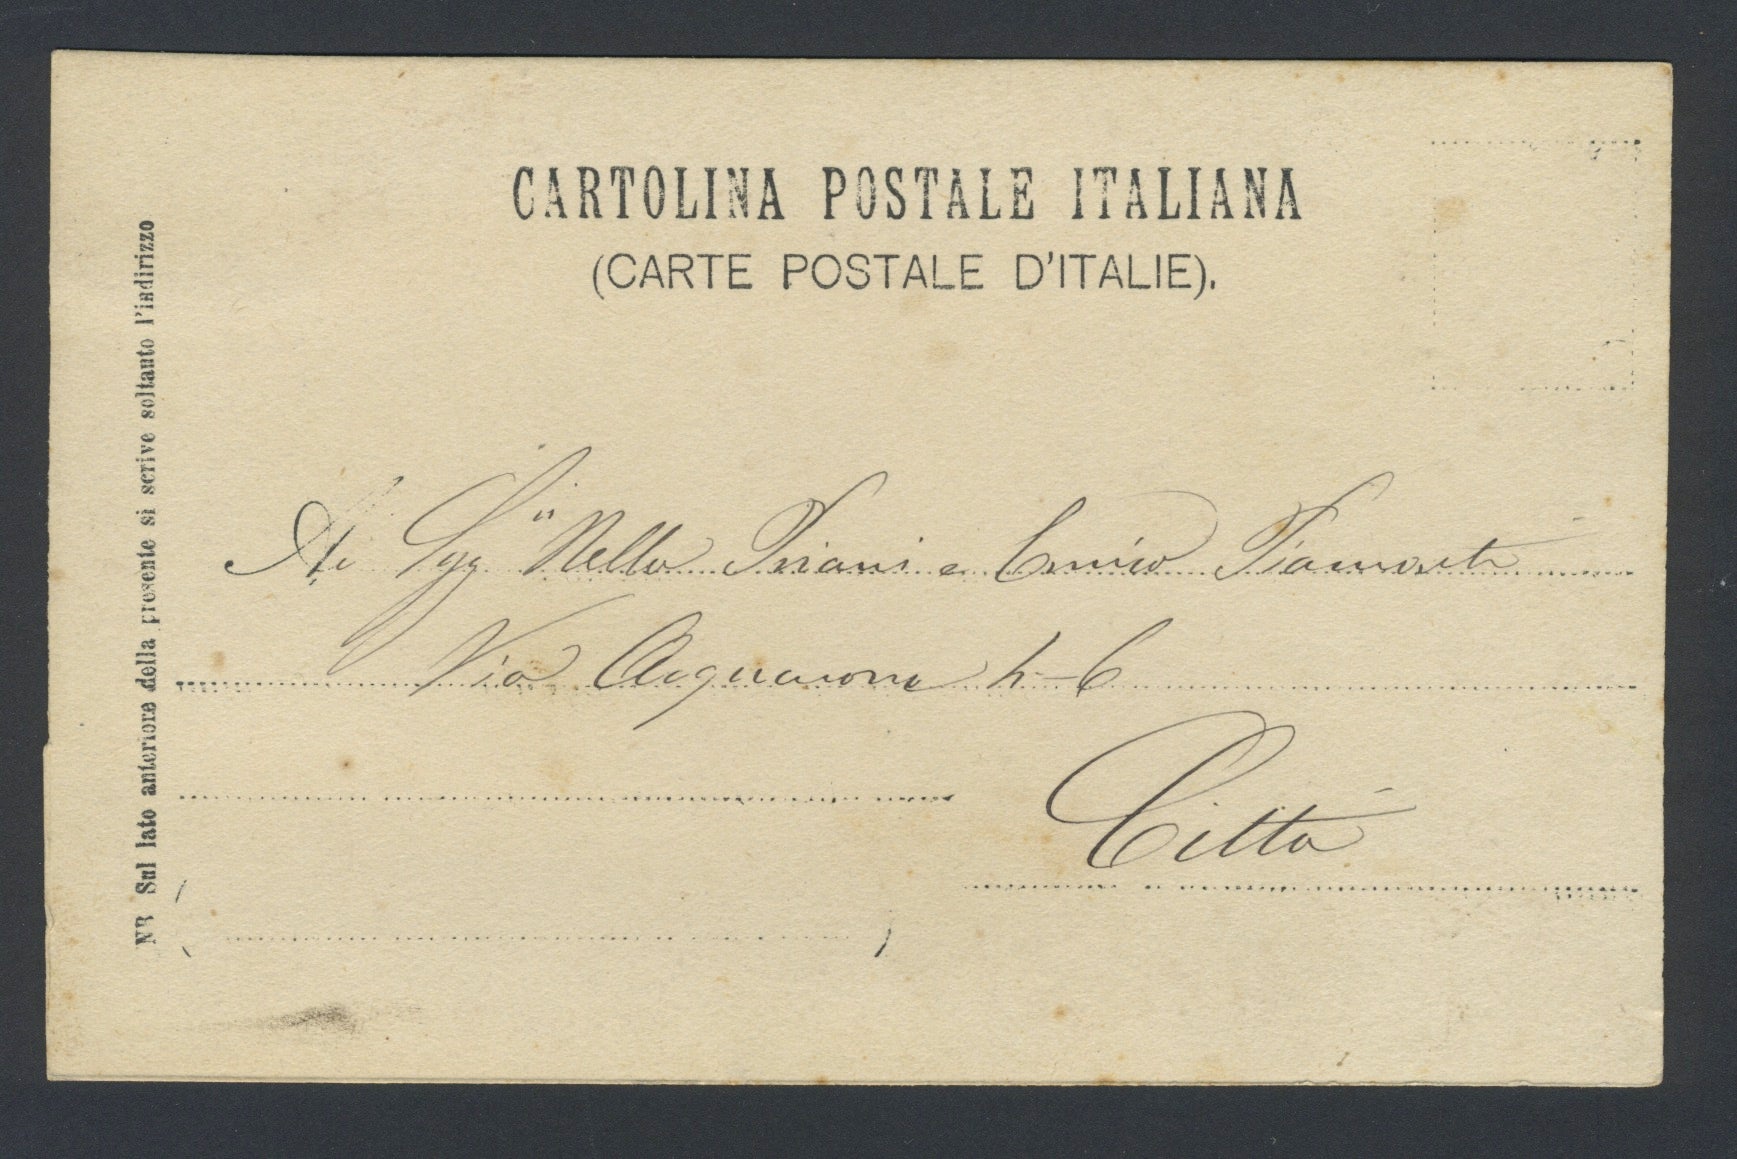 CARTOLINA POSTALE ITALIANA
(CARTE POSTALE D'ITALIE).
NB Sul lato anteriore della presente si scrive soltanto l'indirizzo
Ai Sigg.ri Nello e Enrico
Via 4-6
Città